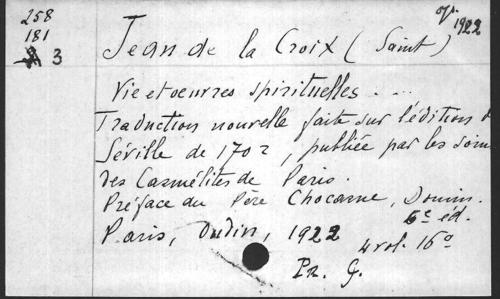 258
181
3
1922
Jean de la Croix (Saint)
Vie et oeuvres spirituelles ....
Traduction nouvelle faite sur l'édition d
Séville de 1702, publiée par les soins
des Carmélites de Paris.
Préface du Père Chocarne, Domin.
6e éd.
Paris, Oudin, 1922
4 vol. 16º
Pr. G.